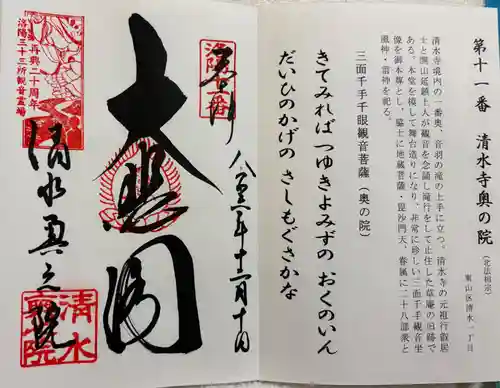 第十一番 清水寺奥の院
(北法相宗)
東山区清水一丁目
清水寺境内の一番奥、音羽の滝の上手に立つ。清水寺の元祖行叡居
士と開山延鎮上人が観音を念誦し滝行をして止住した草庵の旧蹟で
ある。本堂を模して舞台造りになり、非常に珍しい三面千手観音坐
像を御本尊とし、脇士に地蔵菩薩・毘沙門天、眷属に二十八部衆と
風神・雷神を祀る。
三面千手千眼観音菩薩(奥の院)
きてみればつゆきよみずの おくのいん
だいひのかげの さしもぐさかな
奉拝
八年十二月十日
洛陽
十一番
大悲閣
再興二十周年
洛陽三十三所観音霊場
清水奥之院
清水
奥院